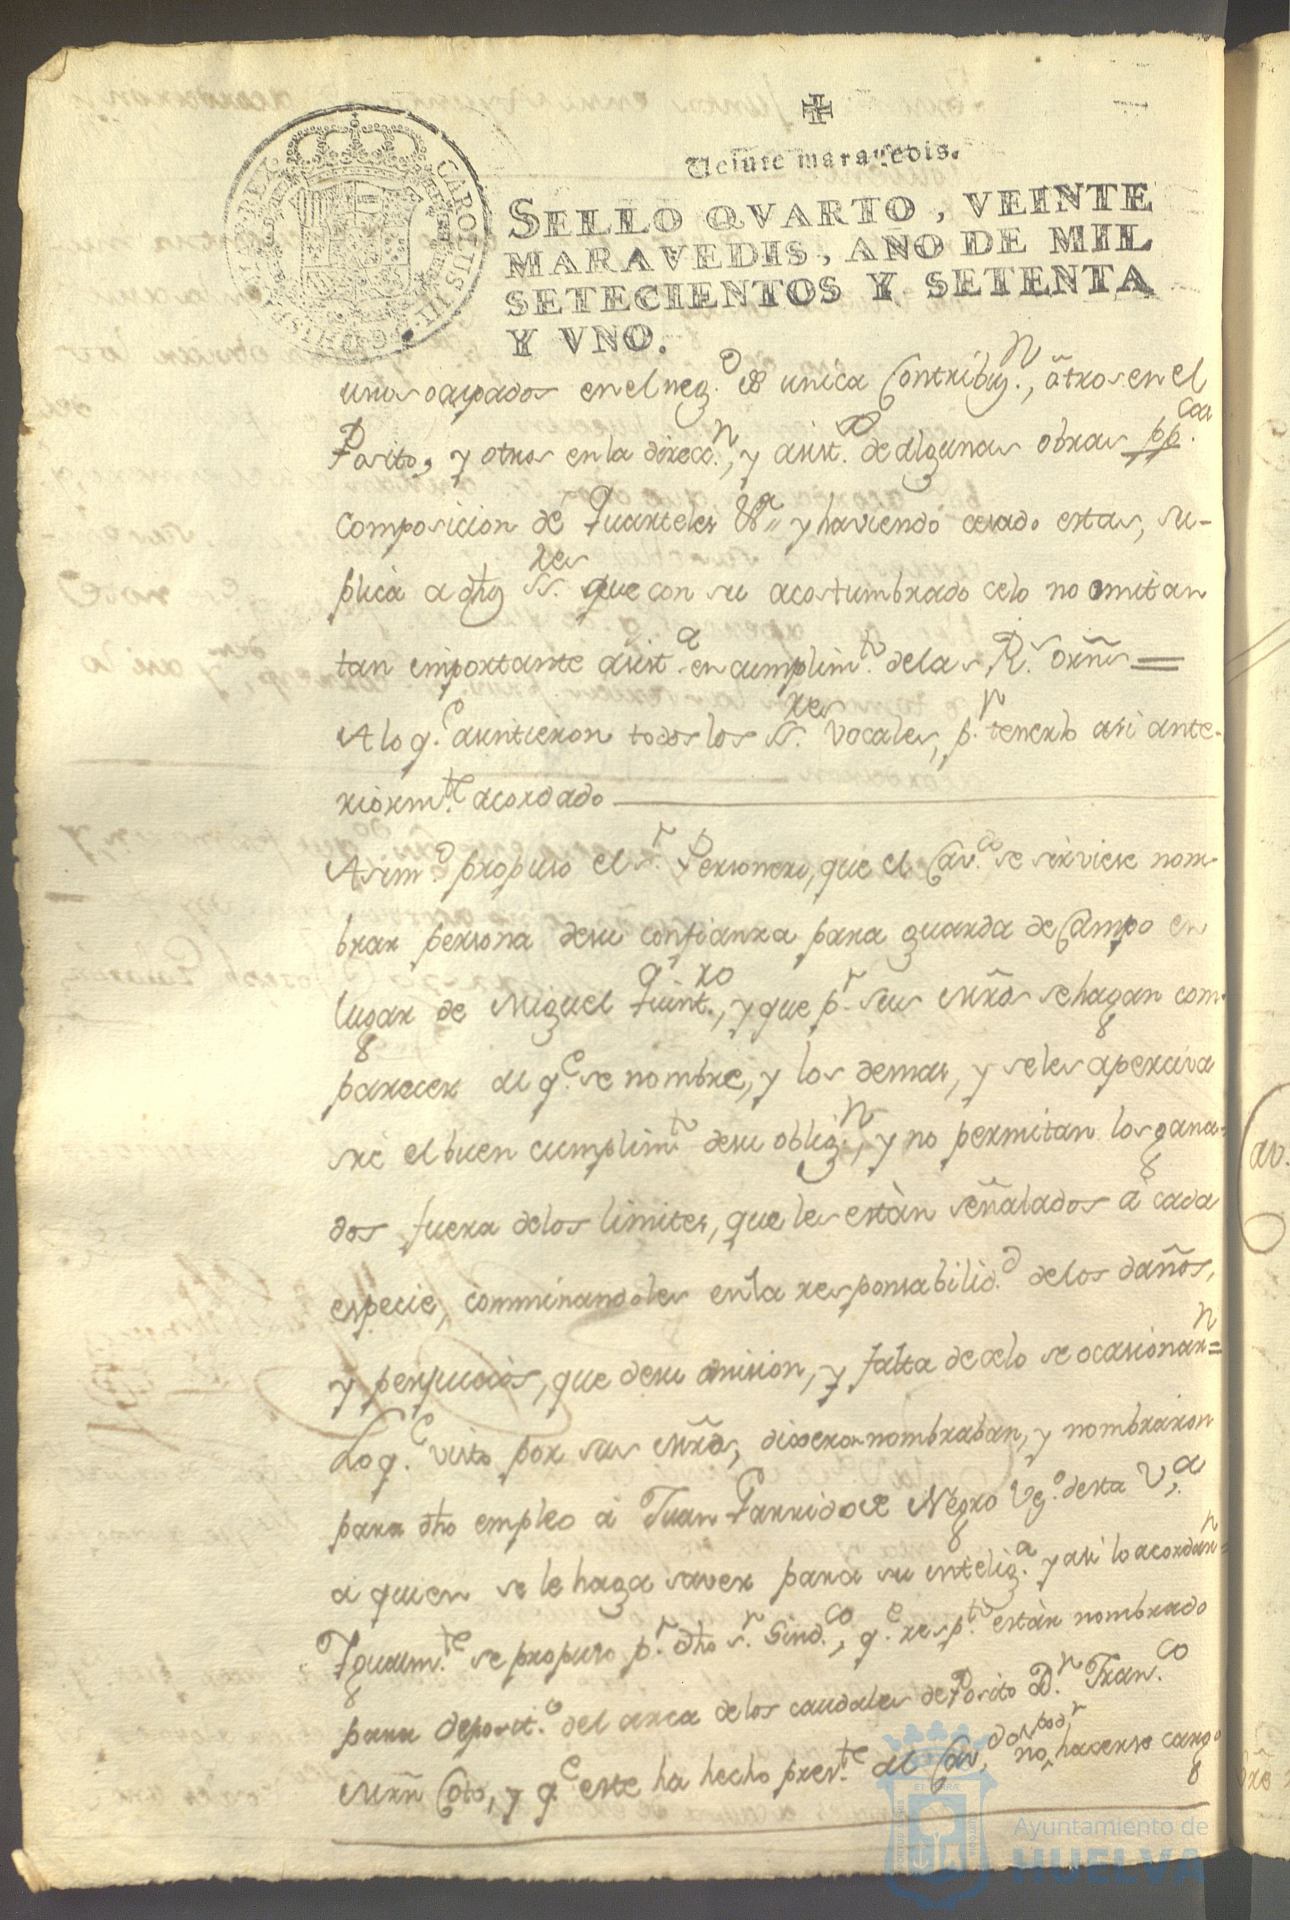 Veinte maravedis.
SELLO QVARTO, VEINTE
MARAVEDIS, AÑO DE MIL
SETECIENTOS Y SETENTA
Y VNO.
CAROLUS III D G HISPANIAR REX
unos ocupados en el neg.º de unica Contribuz.n, otros en el
Posito, y otros en la direcc.n, y asist.a de algunas obras pp.cas
composicion de Quarteles &a y haviendo cesado estas, su-
plica a dhos SS.res que con su acostumbrado celo no omitan
tan importante asist.a en cumplim.to de las R.s orñs =
A lo q.e asintieron todos los SS.res Vocales, p.r tenerlo asi ante-
riorm.te acordado
Asim.o propuso el s.r Personero, que el Cav.do se sirviese nom-
brar persona de su confianza para guarda de Campo en
lugar de Miguel Quint.ro, y que p.r sus mrds se hagan com-
parecer al q.e se nombre, y los demas, y se les aperciva
sre el buen cumplim.to de su oblig.n, y no permitan los gana-
dos fuera de los limites, que les estàn señalados à cada
especie, comminandoles en la responsabilid.d de los daños,
y perjuicios, que de su omision, y falta de celo se ocasionar.n =
Lo q.e visto por sus mrds, dixeron nombraban, y nombraron
para dho empleo à Juan Garrido el Negro Vz.o desta V.a,
a quien se le haga saver para su intelig.a y asi lo acordar.n =
Igualm.te se propuso p.r dho s.r Sind.co, q.e resp.to estàr nombrado
para deposit.o del arca de los caudales de Posito D.n Fran.co
Mrñ Coto, y q.e este ha hecho pres.te al Cav.do no poder hacerse cargo
Cav.
Ayuntamiento de
HUELVA